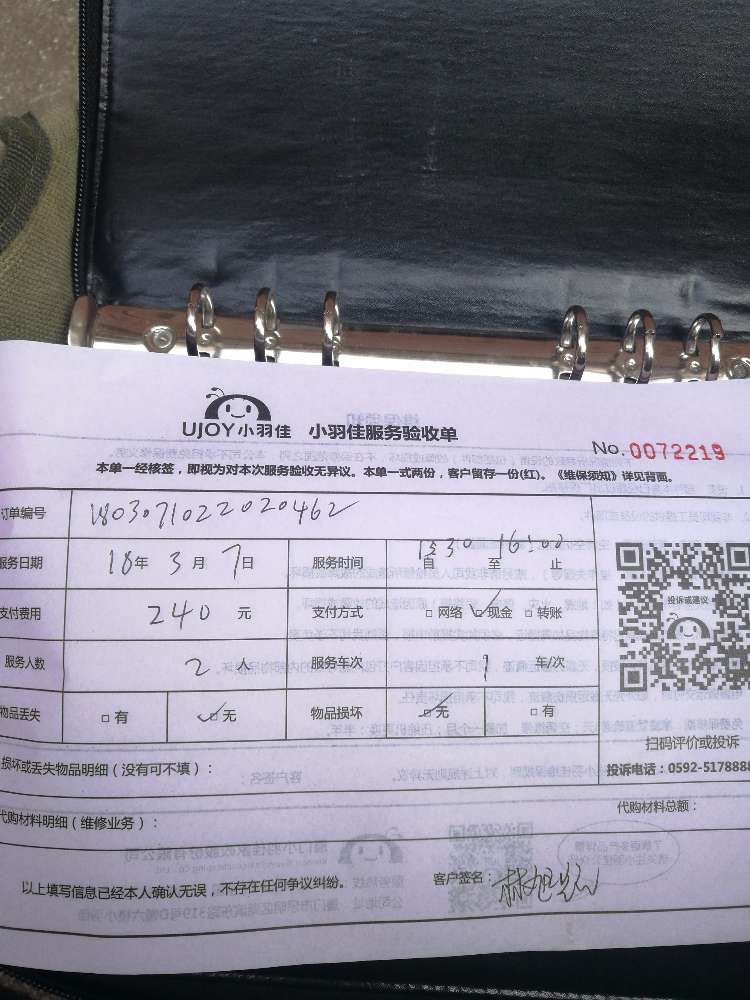 UJOY小羽佳 小羽佳服务验收单
No.0072219
本单一经核签，即视为对本次服务验收无异议。本单一式两份，客户留存一份(红)。《维保须知》详见背面。
订单编号 180307102202046​2
服务日期 18年 3月 7日 服务时间 自 至 16:00 止
支付费用 240 元 支付方式 □网络 ☑现金 □转账
服务人数 2人 服务车次 1 车/次
物品丢失 □有 ☑无 物品损坏 ☑无 □有
投诉或建议
扫码评价或投诉
投诉电话：0592-5178888
损坏或丢失物品明细（没有可不填）：
代购材料明细（维修业务）：
代购材料总额：
以上填写信息已经本人确认无误，不存在任何争议纠纷。
客户签名：